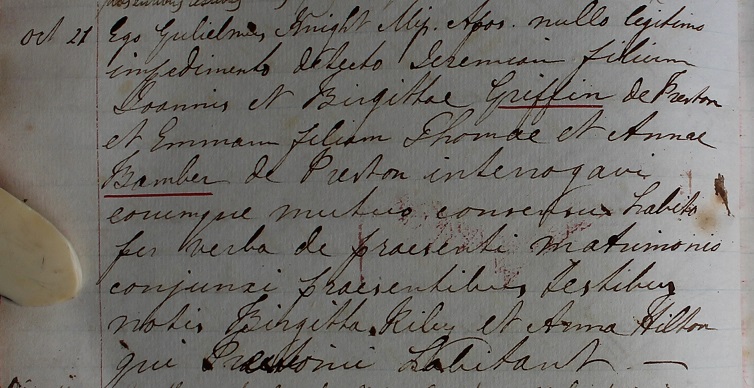 Oct 21 Ego Gulielmus Knight Mis. Apos. nullo legitimo
impedimento detecto Jeremiam filium
Joannis et Birgittae Griffin de Preston
et Emmam filiam Thomae et Annae
Bamber de Preston interrogavi
eorumque mutuo consensu habito
per verba de praesenti matrimonio
conjunxi praesentibus testibus
notis Birgitta Riley et Anna Hilton
qui Prestonii habitant —